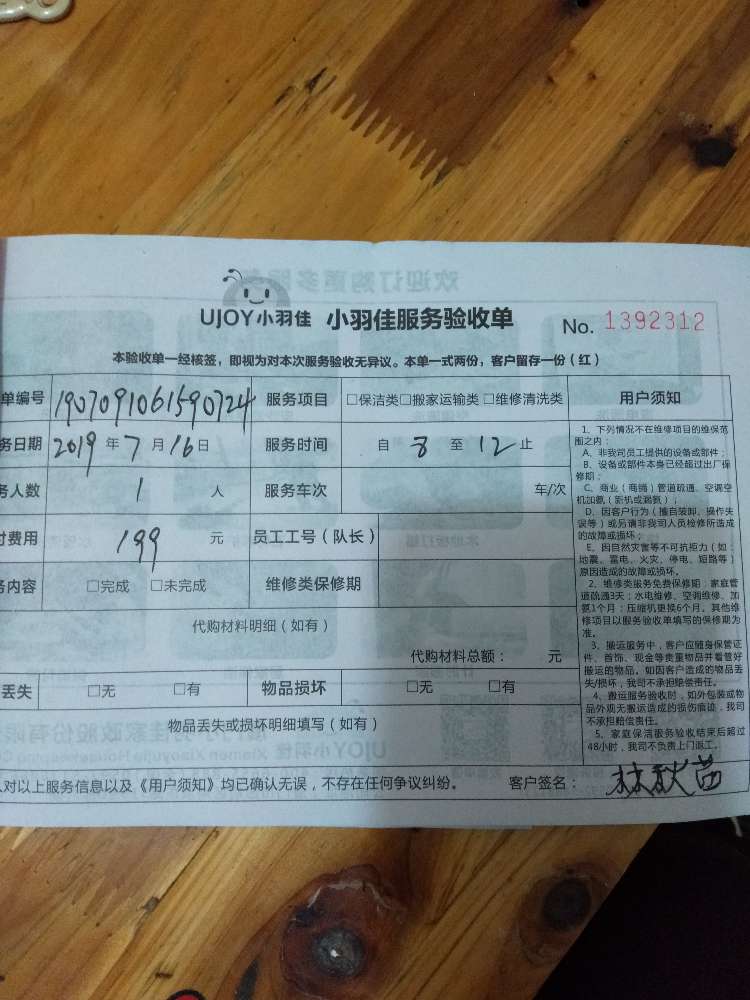 UJOY小羽佳 小羽佳服务验收单 No. 1392312
本验收单一经核签，即视为对本次服务验收无异议。本单一式两份，客户留存一份（红）
单编号 1907091061590724 服务项目 □保洁类□搬家运输类 □维修清洗类 用户须知
务日期 2019 年 7 月 16 日 服务时间 自 8 至 12 止
务人数 1 人 服务车次 车/次
付费用 199 元 员工工号（队长）
务内容 □完成 □未完成 维修类保修期
代购材料明细（如有）
代购材料总额： 元
丢失 □无 □有 物品损坏 □无 □有
物品丢失或损坏明细填写（如有）
1、下列情况不在维修项目的维保范
围之内：
A、非我司员工提供的设备或部件；
B、设备或部件本身已经超过出厂保
修期；
C、商业（商铺）管道疏通、空调空
机加氟（新机或漏氟）；
D、因客户行为（擅自装卸、操作失
误等）或另请非我司人员检修所造成
的故障或损坏；
E、因自然灾害等不可抗拒力（如：
地震、雷电、火灾、停电、短路等）
原因造成的故障或损坏。
2、维修类服务免费保修期：家庭管
道疏通3天；水电维修、空调维修、加
氟1个月；压缩机更换6个月。其他维
修项目以服务验收单填写的保修期为
准。
3、搬运服务中，客户应随身保管证
件、首饰、现金等贵重物品并看管好
搬运的物品。如因客户造成的物品丢
失/损坏，我司不承担赔偿责任。
4、搬运服务验收时，如外包装或物
品外观无搬运造成的损伤痕迹，我司
不承担赔偿责任。
5、家庭保洁服务验收结束后超过
48小时，我司不负责上门返工。
人对以上服务信息以及《用户须知》均已确认无误，不存在任何争议纠纷。 客户签名： 林秋苗